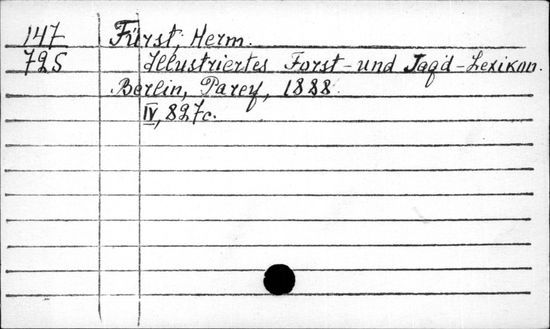 147 Fürst, Herm.
725 Illustriertes Forst- und Jagd-Lexikon.
Berlin, Parey, 1888.
IV, 827c.